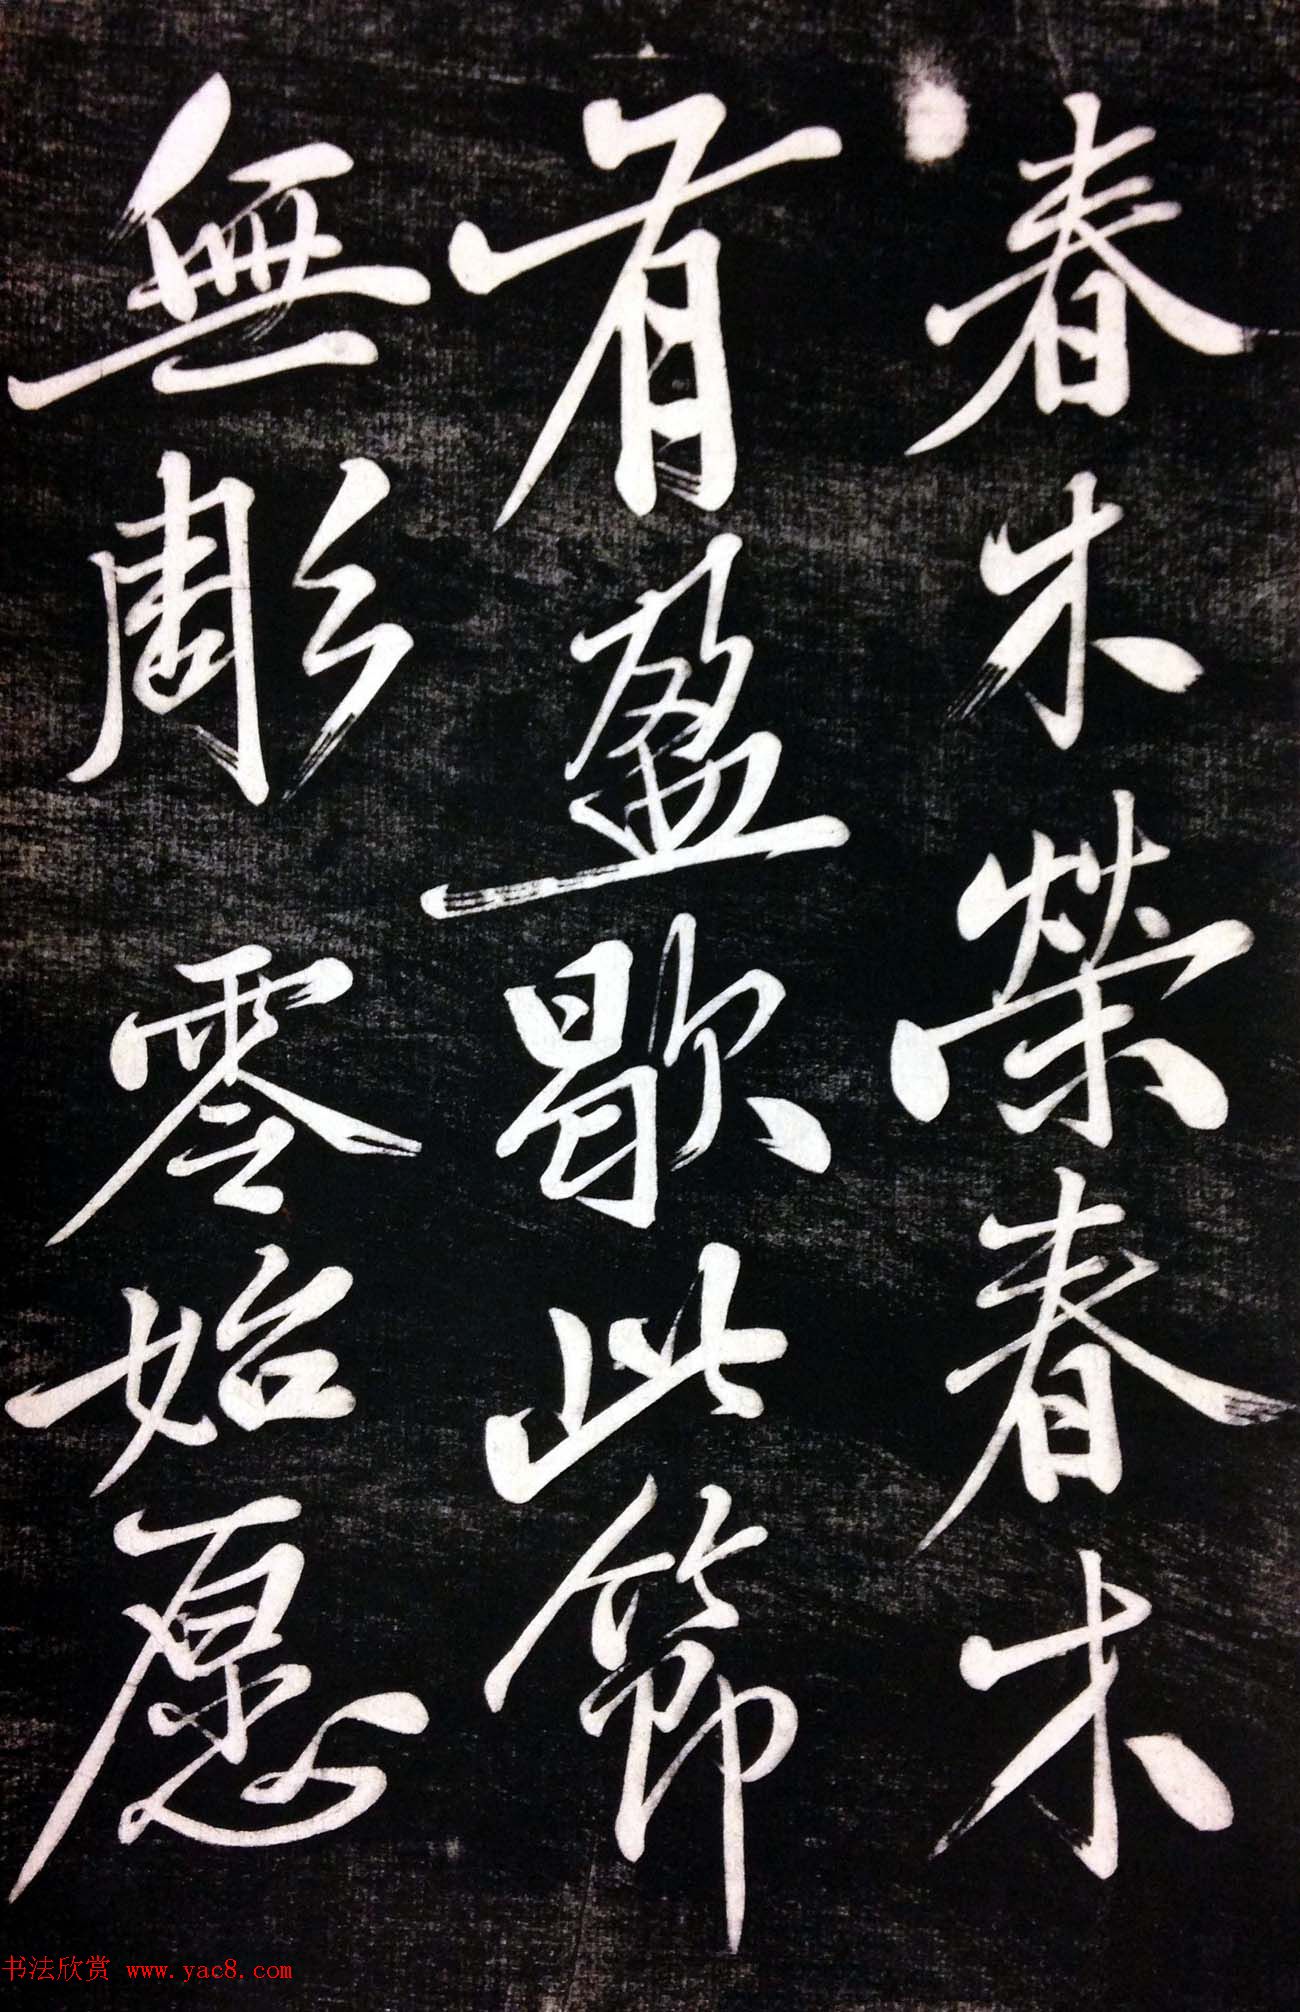 春木榮春春木
有盈歇此節
無彫零始愿
书法欣赏 www.yac8.com